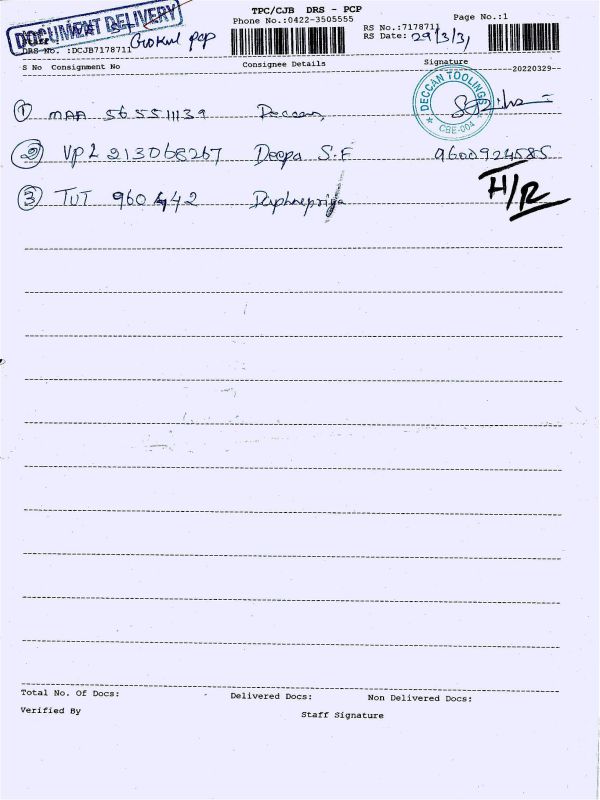 TPC/CJB DRS - PCP
Phone No.:0422-3505555
Page No.:1
RS No.:7178711
RS Date: 29/3/31
DOCUMENT DELIVERY
Gokul pcp
DRS No. :DCJB7178711
S No Consignment No Consignee Details Signature
20220329
① MAA 565511139 Deccan
DECCAN TOOLINGS
CBE-004
② VPL 213068267 Deepa S.E 9600924585
③ TUT 960442 Daphnepriya H/R
Total No. Of Docs: Delivered Docs: Non Delivered Docs:
Verified By Staff Signature